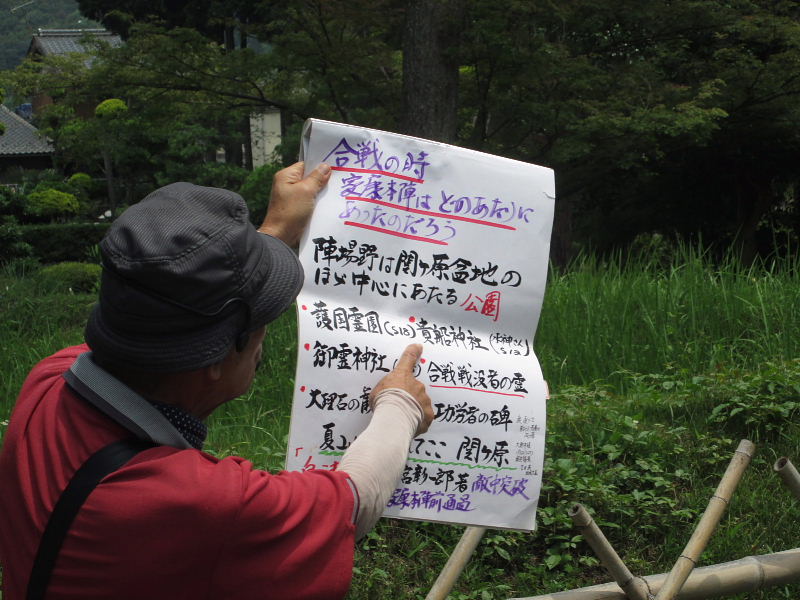 合戦の時
家康本陣は どのあたりに
あったのだろう
陣場野は関ヶ原盆地の
ほゞ中心にあたる 公園
護国霊園(S18) 貴船神社(水神さん
御霊神社 合戦戦没者の霊
大理石の 功労者の碑
夏 こ 関ヶ原
彰一郎著 敵中突破
家康本陣前通過